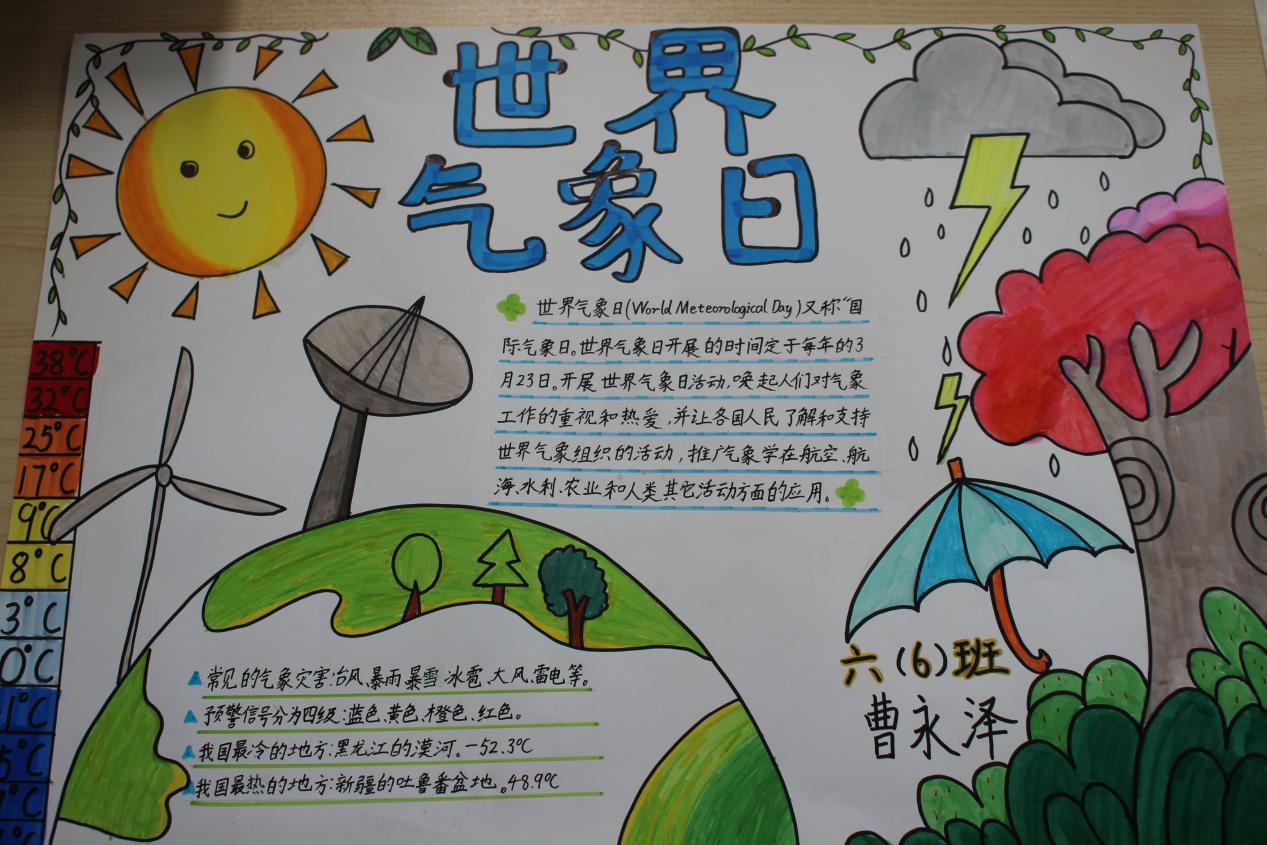 世界
气象日
世界气象日(World Meteorological Day)又称“国
际气象日。世界气象日开展的时间定于每年的3
月23日。开展世界气象日活动,唤起人们对气象
工作的重视和热爱,并让各国人民了解和支持
世界气象组织的活动,推广气象学在航空、航
海、水利、农业和人类其它活动方面的应用。
38°C
32°C
25°C
17°C
9°C
8°C
3°C
0°C
常见的气象灾害:台风、暴雨、暴雪、冰雹、大风、雷电等。
预警信号分为四级:蓝色、黄色、橙色、红色。
我国最冷的地方:黑龙江的漠河。-52.3°C
我国最热的地方:新疆的吐鲁番盆地。48.9°C
六(6)班
曹永泽